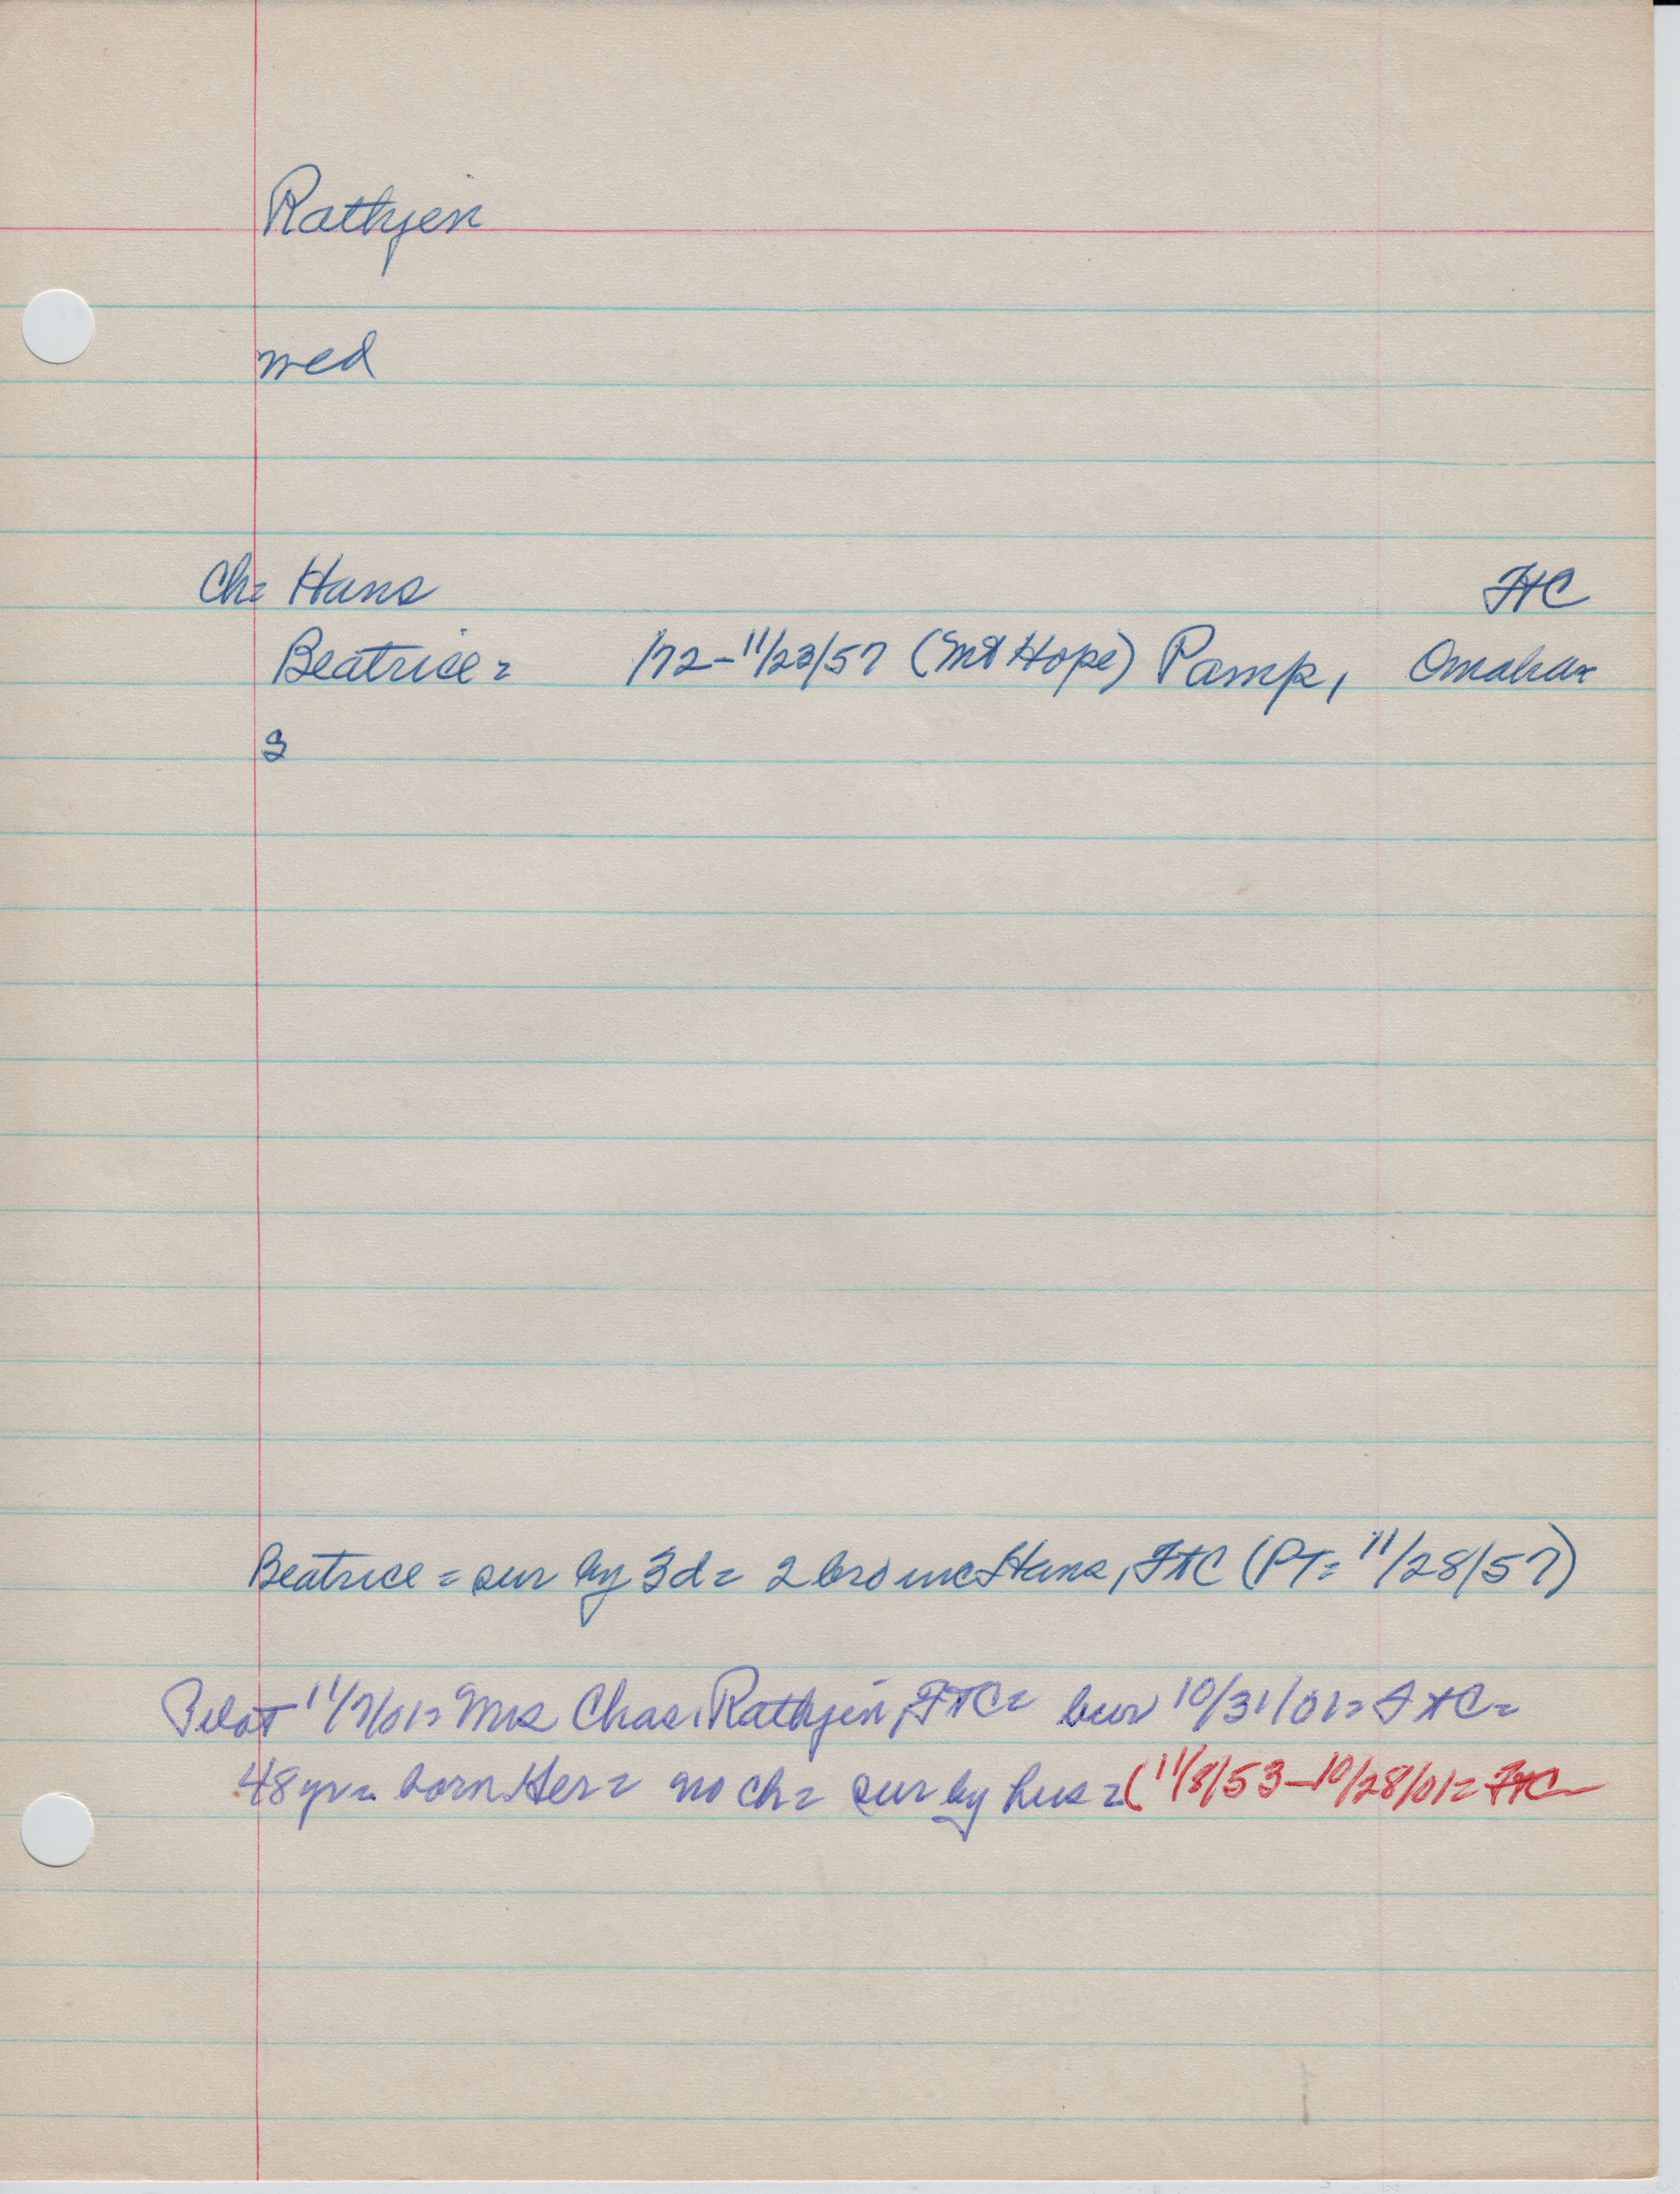 Rathjen
med
Ch= Hans FtC
Beatrice= /72-11/23/57 (Mt Hope) Pamp, Omaha=
3
Beatrice = sur by 3d= 2 bro inc Hans, FtC (PT= 11/28/57)
Pilot 11/7/01= Mrs Chas. Rathjen, FtC= bur 10/31/01= FtC=
48yr= born Ger= no ch= sur by hus= (11/8/53-10/28/01= FtC